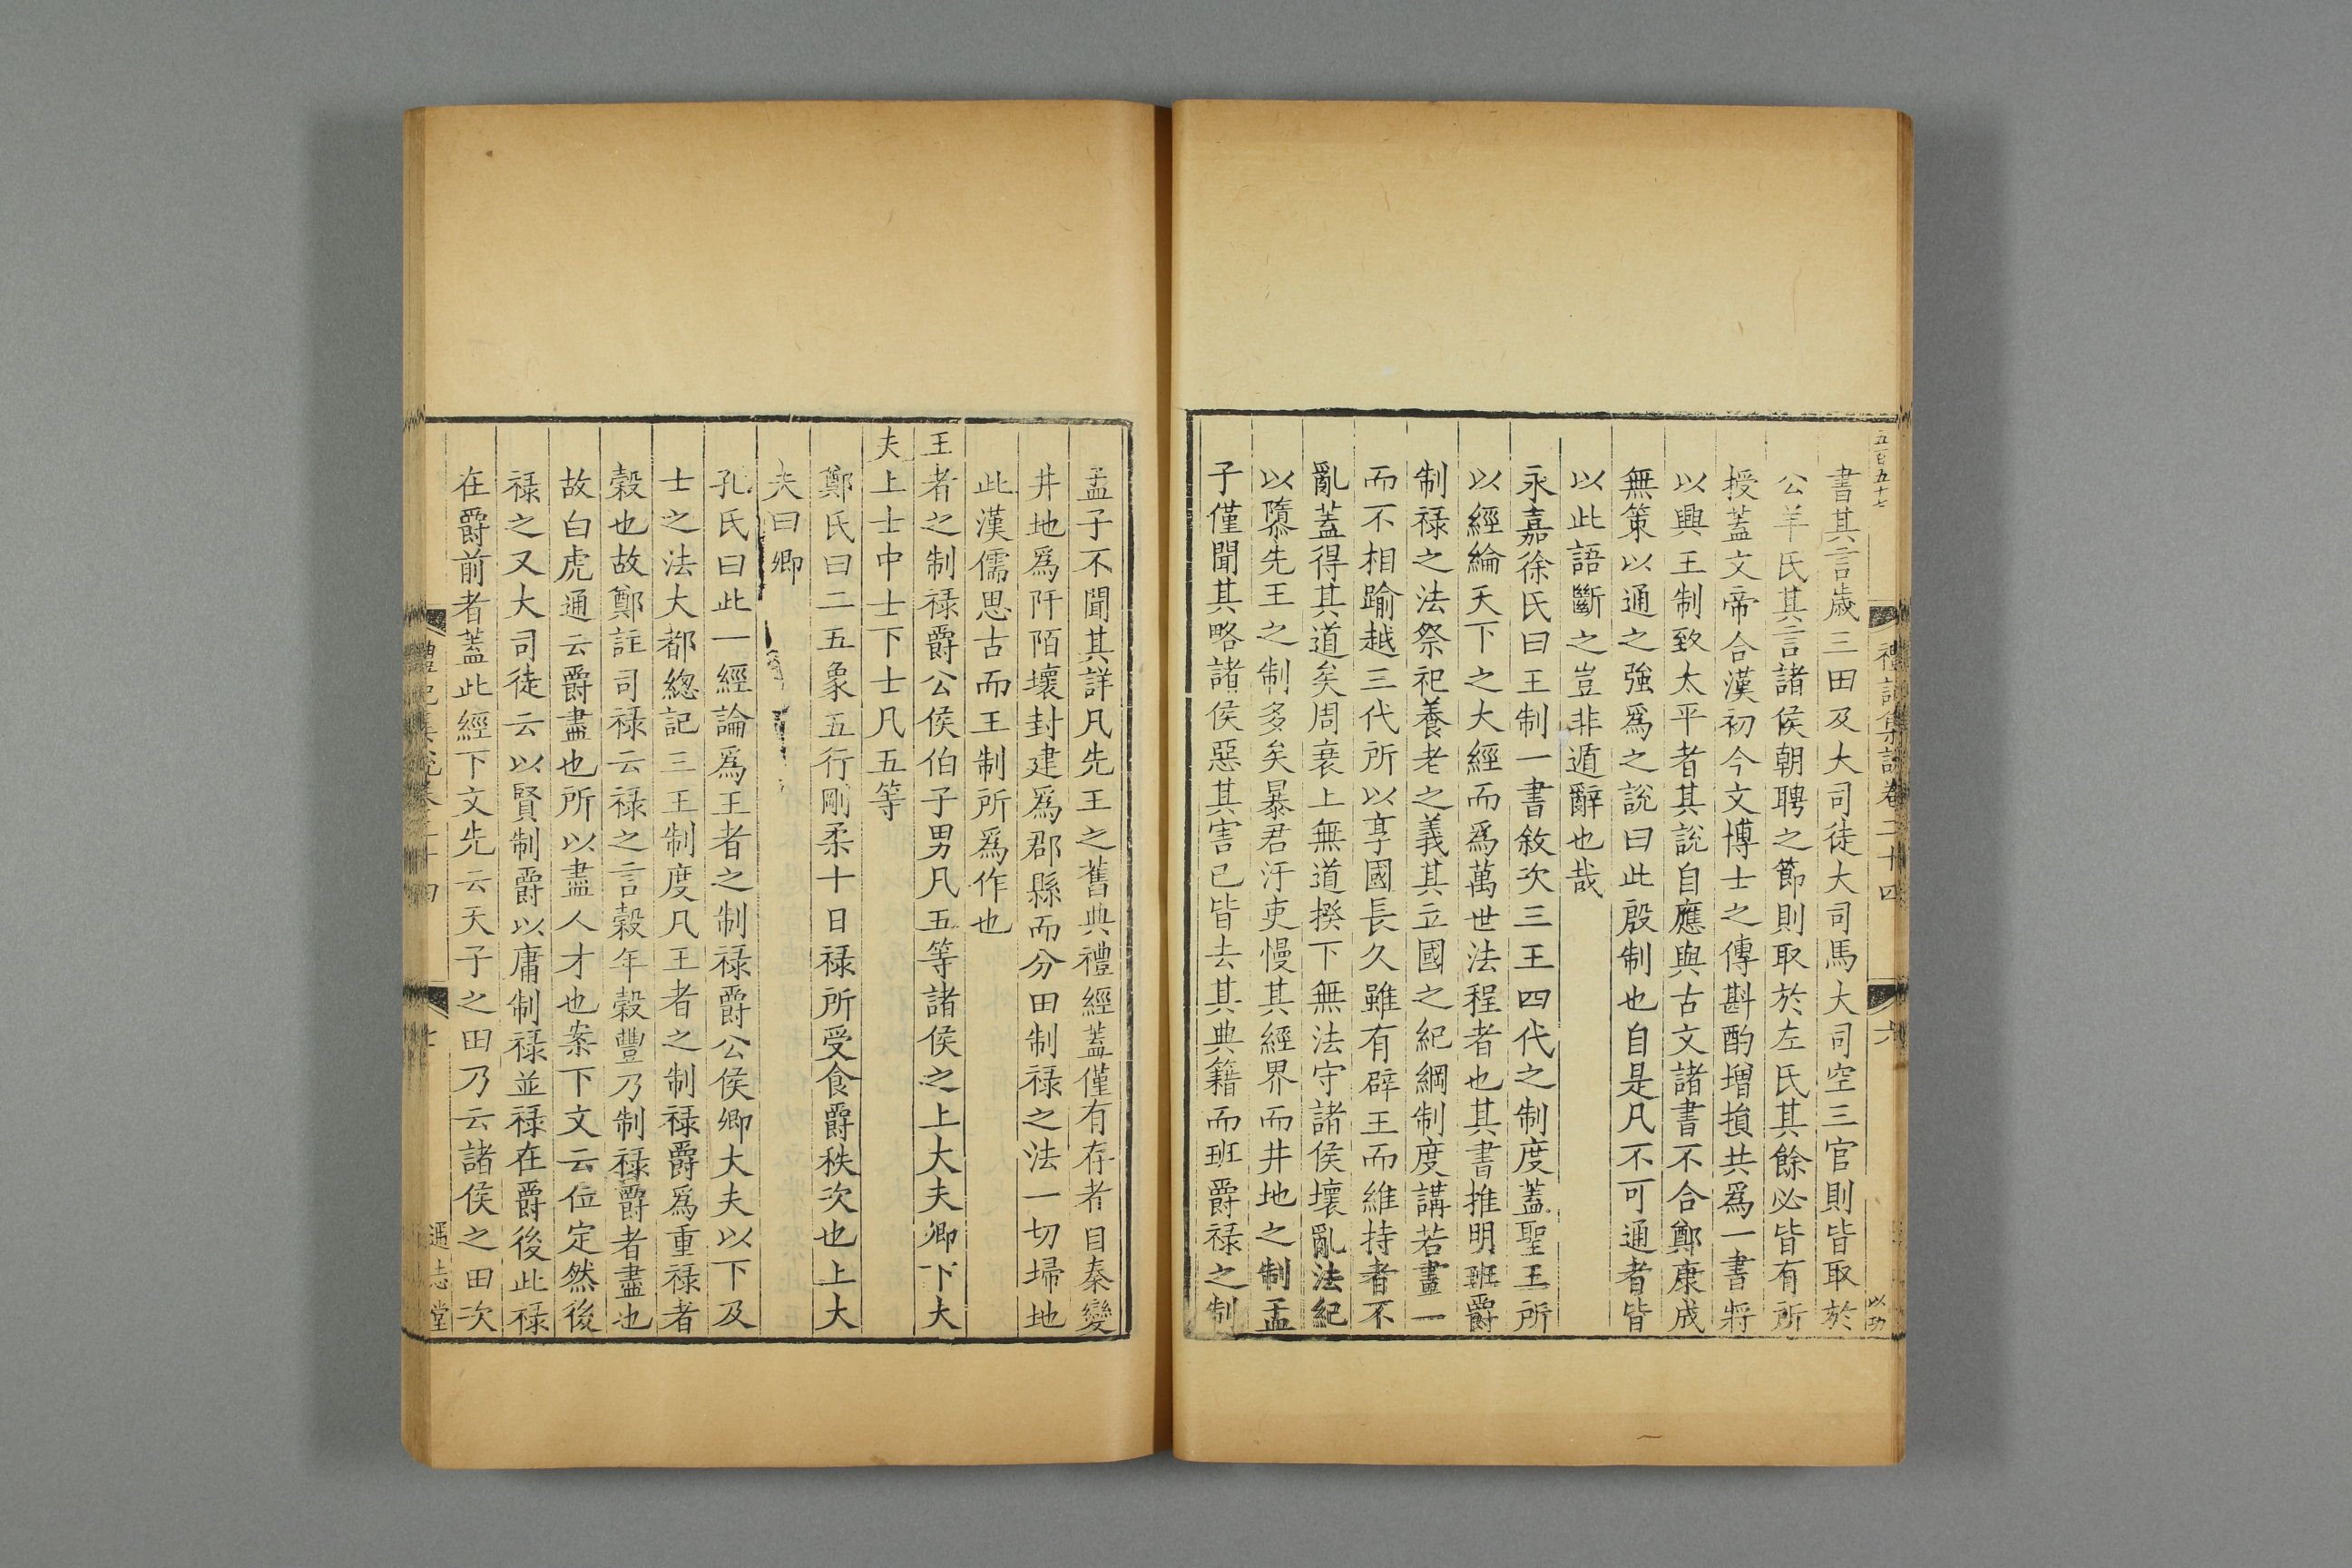 五百五十七
禮記集說卷二十四
六
以功
書其言歲三田及大司徒大司馬大司空三官則皆取於
公羊氏其言諸侯朝聘之節則取於左氏其餘必皆有所
授蓋文帝合漢初今文博士之傳斟酌增損共爲一書將
以興王制致太平者其說自應與古文諸書不合鄭康成
無策以通之強爲之說曰此殷制也自是凡不可通者皆
以此語斷之豈非遁辭也哉
永嘉徐氏曰王制一書敘次三王四代之制度蓋聖王所
以經綸天下之大經而爲萬世法程者也其書推明班爵
制祿之法祭祀養老之義其立國之紀綱制度講若畫一
而不相踰越三代所以享國長久雖有辟王而維持者不
亂蓋得其道矣周衰上無道揆下無法守諸侯壞亂法紀
以隳先王之制多矣暴君汙吏慢其經界而井地之制孟
子僅聞其略諸侯惡其害已皆去其典籍而班爵祿之制
孟子不聞其詳凡先王之舊典禮經蓋僅有存者自秦變
井地爲阡陌壞封建爲郡縣而分田制祿之法一切埽地
此漢儒思古而王制所爲作也
王者之制祿爵公侯伯子男凡五等諸侯之上大夫卿下大
夫上士中士下士凡五等
鄭氏曰二五象五行剛柔十日祿所受食爵秩次也上大
夫曰卿
孔氏曰此一經論爲王者之制祿爵公侯卿大夫以下及
士之法大都緫記三王制度凡王者之制祿爵爲重祿者
穀也故鄭註司祿云祿之言穀年穀豐乃制祿爵者盡也
故白虎通云爵盡也所以盡人才也案下文云位定然後
祿之又大司徒云以賢制爵以庸制祿並祿在爵後此祿
在爵前者蓋此經下文先云天子之田乃云諸侯之田次
禮記集說卷二十四
七
通志堂